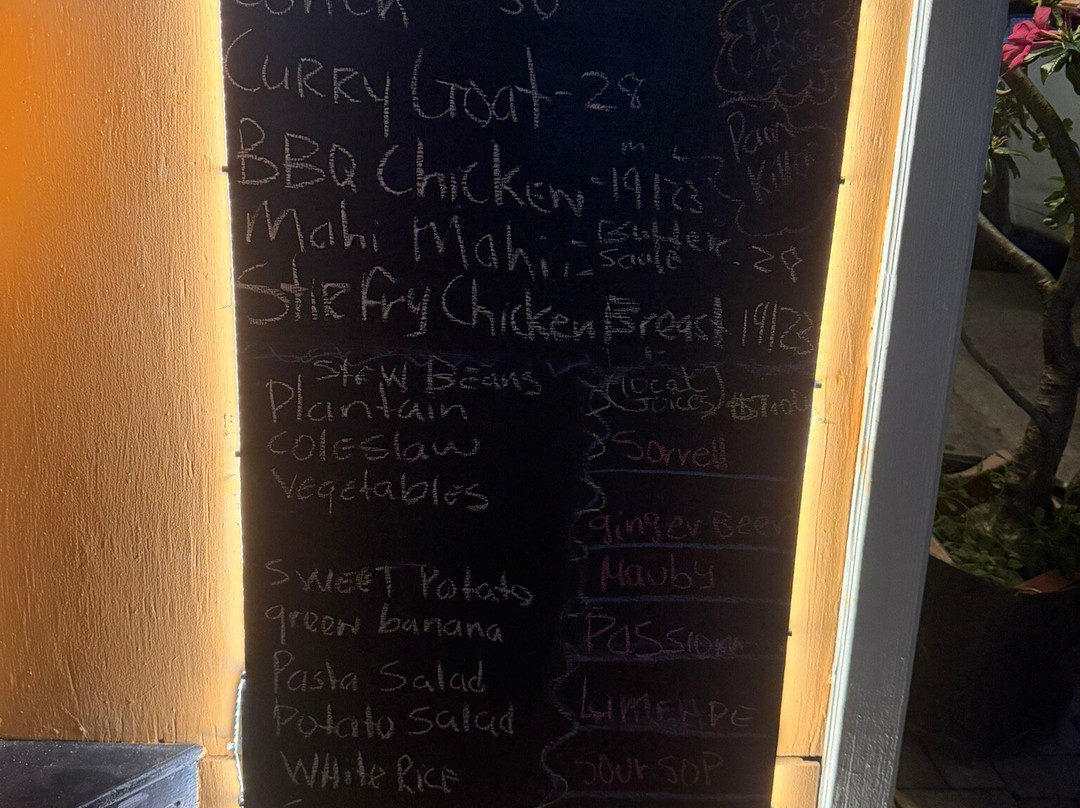 Conch 30
Curry Goat - 28
BBQ Chicken - 19/23
Mahi Mahi - Butter Sauté - 28
Stir fry Chicken Breast 19/23
Stew Beans
Plantain
coleslaw
Vegetables
SWEET Potato
green banana
Pasta Salad
Potato Salad
White Rice
$5.00
Pain
Killer
(Local
Juices)
Sorrell
ginger Beer
Mauby
Passion
LIMEADE
Sour SOP